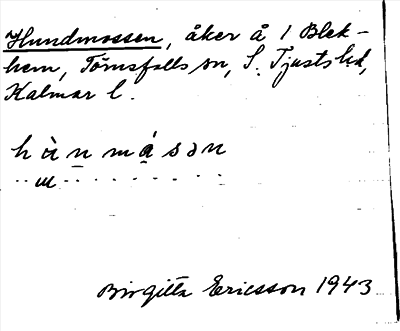 Hundmossen, åker å 1 Blek-
hem, Törnsfalls sn, S. Tjusts hd,
Kalmar l.
hùnmå̀sən
Birgitta Ericsson 1943